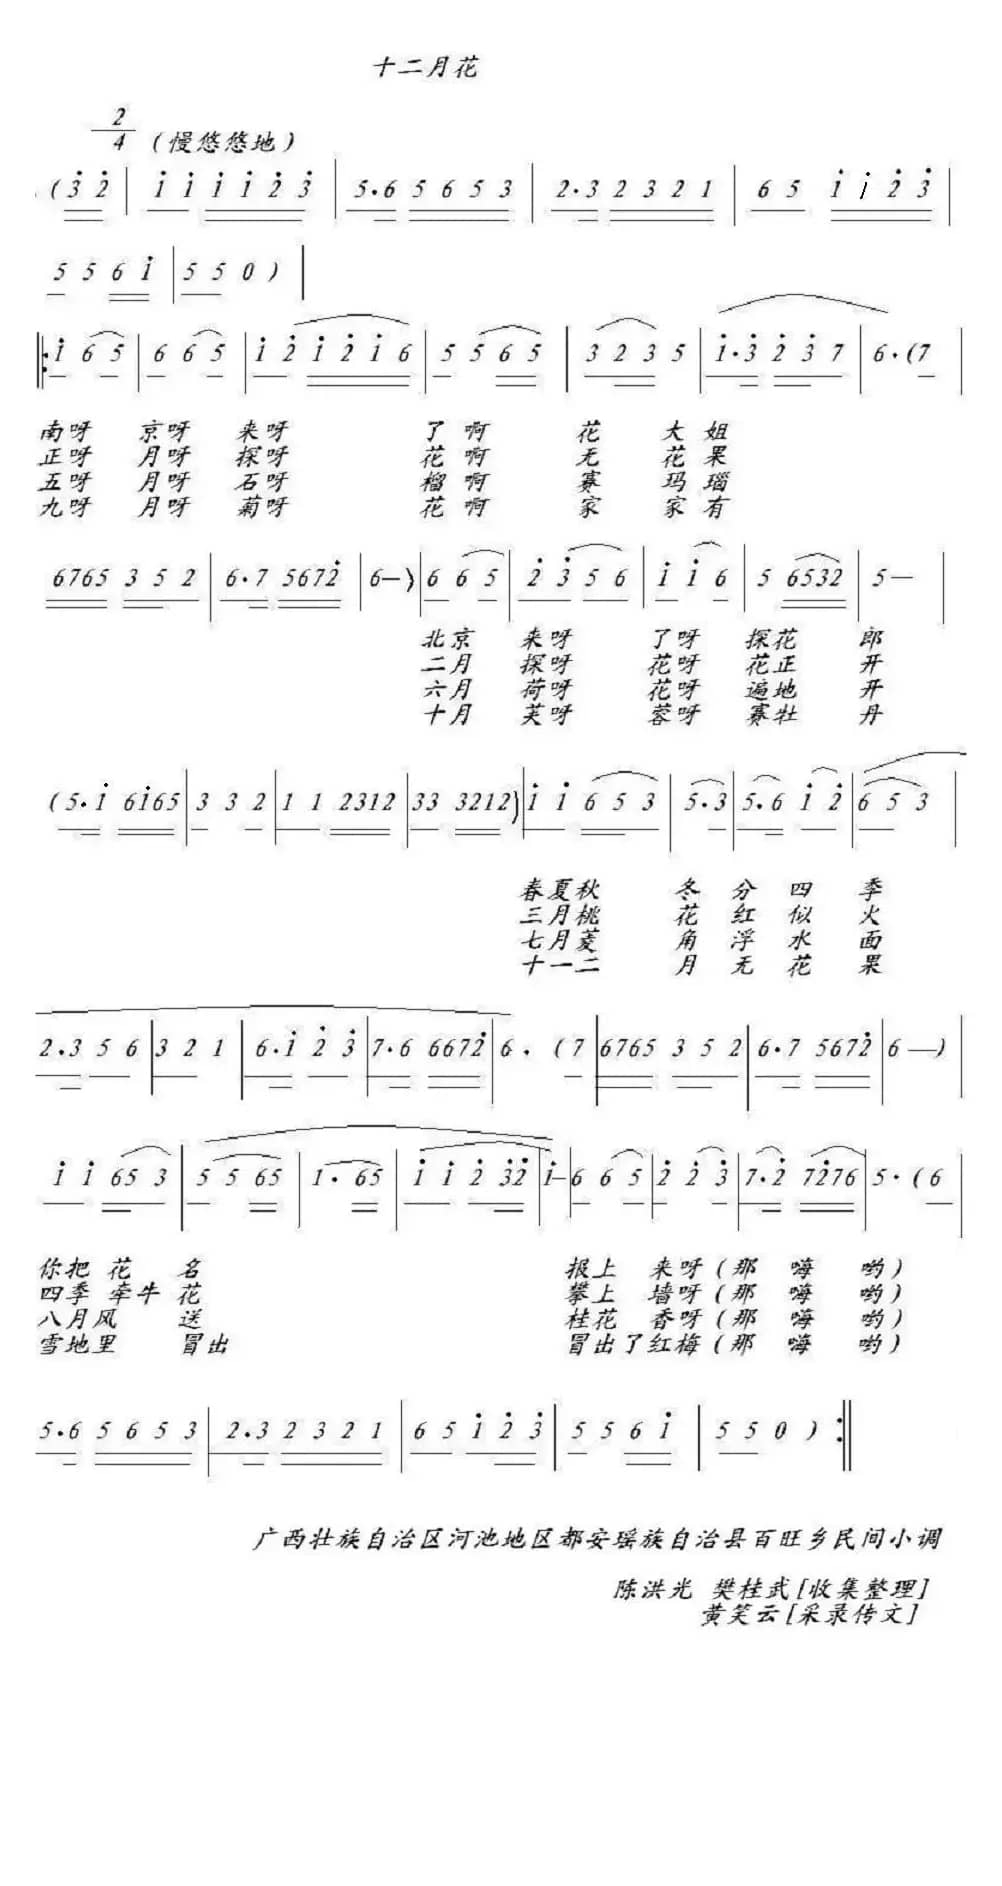 十二月花
2/4 (慢悠悠地)
(3̇ 2̇ | 1̇ 1̇ 1̇ 1̇ 2̇ 3̇ | 5·6 5 6 5 3 | 2·3 2 3 2 1 | 6 5 1̇ 1̇ 2̇ 3̇ |
5 5 6 1̇ | 5 5 0 ) |
‖: 1̇ 6 5 | 6 6 5 | 1̇ 2̇ 1̇ 2̇ 1̇ 6 | 5 5 6 5 | 3 2 3 5 | 1̇·3̇ 2̇ 3̇ 7 | 6·(7 |
南呀 京呀 来呀 了啊 花 大姐
正呀 月呀 探呀 花啊 无 花果
五呀 月呀 石呀 榴啊 赛 玛瑙
九呀 月呀 菊呀 花啊 家 家有
6765 3 5 2 | 6·7 5672̇ | 6—) | 6 6 5 | 2̇ 3̇ 5 6 | 1̇ 1̇ 6 | 5 6532 | 5— |
北京 来呀 了呀 探花 郎
二月 探呀 花呀 花正 开
六月 荷呀 花呀 遍地 开
十月 芙呀 蓉呀 赛牡 丹
(5·1̇ 61̇65 | 3 3 2 | 1 1 2312 | 33 3212) | 1̇ 1̇ 6 5 3 | 5·3 | 5·6 1̇ 2̇ | 6 5 3 |
春夏秋 冬 分 四 季
三月桃 花 红 似 火
七月菱 角 浮 水 面
十一二 月 无 花 果
2·3 5 6 | 3 2 1 | 6·1̇ 2̇ 3̇ | 7·6 6672̇ | 6 · (7 | 6765 3 5 2 | 6·7 5672̇ | 6 —) |
1̇ 1̇ 65 3 | 5 5 65 | 1· 65 | 1̇ 1̇ 2̇ 3̇2̇ | 1̇— | 6 6 5 | 2̇ 2̇ 3̇ | 7·2̇ 72̇76 | 5·(6 |
你把 花 名 报上 来呀(那 嗨 哟)
四季 牵牛 花 攀上 墙呀(那 嗨 哟)
八月风 送 桂花 香呀(那 嗨 哟)
雪地里 冒出 冒出了红梅(那 嗨 哟)
5·6 5 6 5 3 | 2·3 2 3 2 1 | 6 5 1̇ 2̇ 3̇ | 5 5 6 1̇ | 5 5 0 ) :‖
广西壮族自治区河池地区都安瑶族自治县百旺乡民间小调
陈洪光 樊桂武[收集整理]
黄笑云[采录传文]